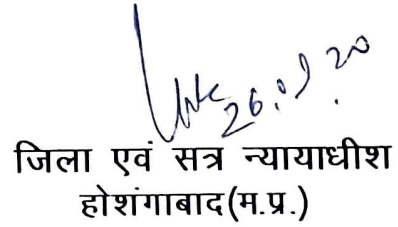 26.09.20
जिला एवं सत्र न्यायाधीश
होशंगाबाद(म.प्र.)